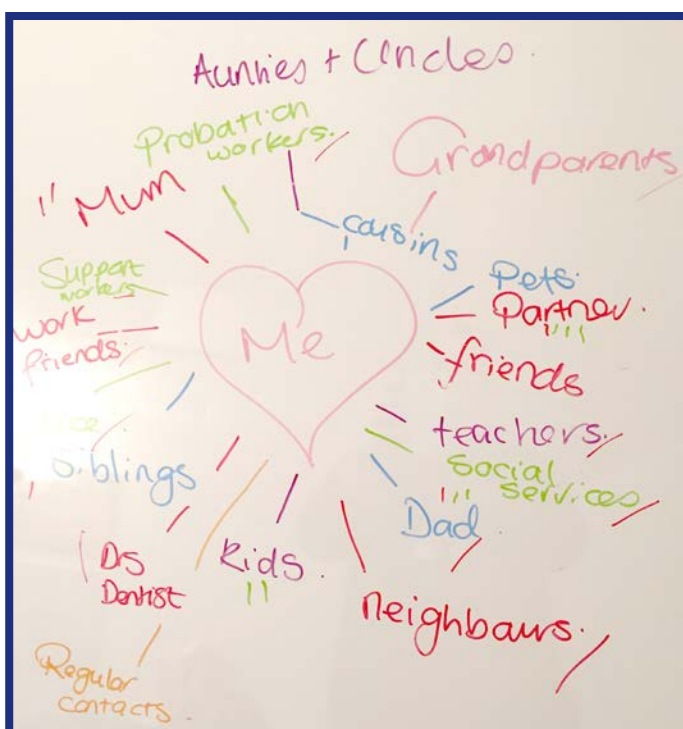 Aunties + Uncles.
Probation
workers.
Grandparents
Mum
cousins
Support
workers
Pets.
Partner.
work
friends.
Me
friends
teachers.
Siblings
Social
Services
Dad
Drs
Dentist
Kids.
neighbours.
Regular
contacts.